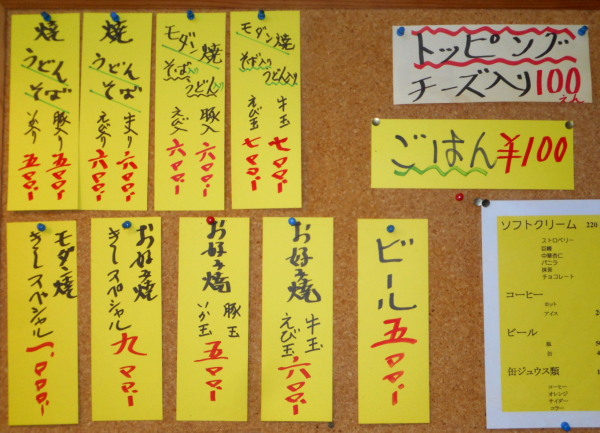 焼
うどん
そば
豚入り 五〇〇-
いか入り 五〇〇-
焼
うどん
そば
牛入り 六〇〇-
えび入り 六〇〇-
モダン焼
そば入り
うどん入り
豚入 六〇〇-
えび入 六〇〇-
モダン焼
そば入り
うどん入り
牛玉 七〇〇-
えび玉 七〇〇-
トッピング
チーズ入り100えん
ごはん¥100
モダン焼
きしスペシャル 一、〇〇〇-
お好み焼
きしスペシャル 九〇〇-
お好み焼
豚玉
いか玉
五〇〇-
お好み焼
牛玉
えび玉
六〇〇-
ビール 五〇〇-
ソフトクリーム 220
ストロベリー
巨峰
中華杏仁
バニラ
抹茶
チョコレート
コーヒー
ホット
アイス
ビール
缶
缶ジュウス類
コーヒー
オレンジ
サイダー
コーラー